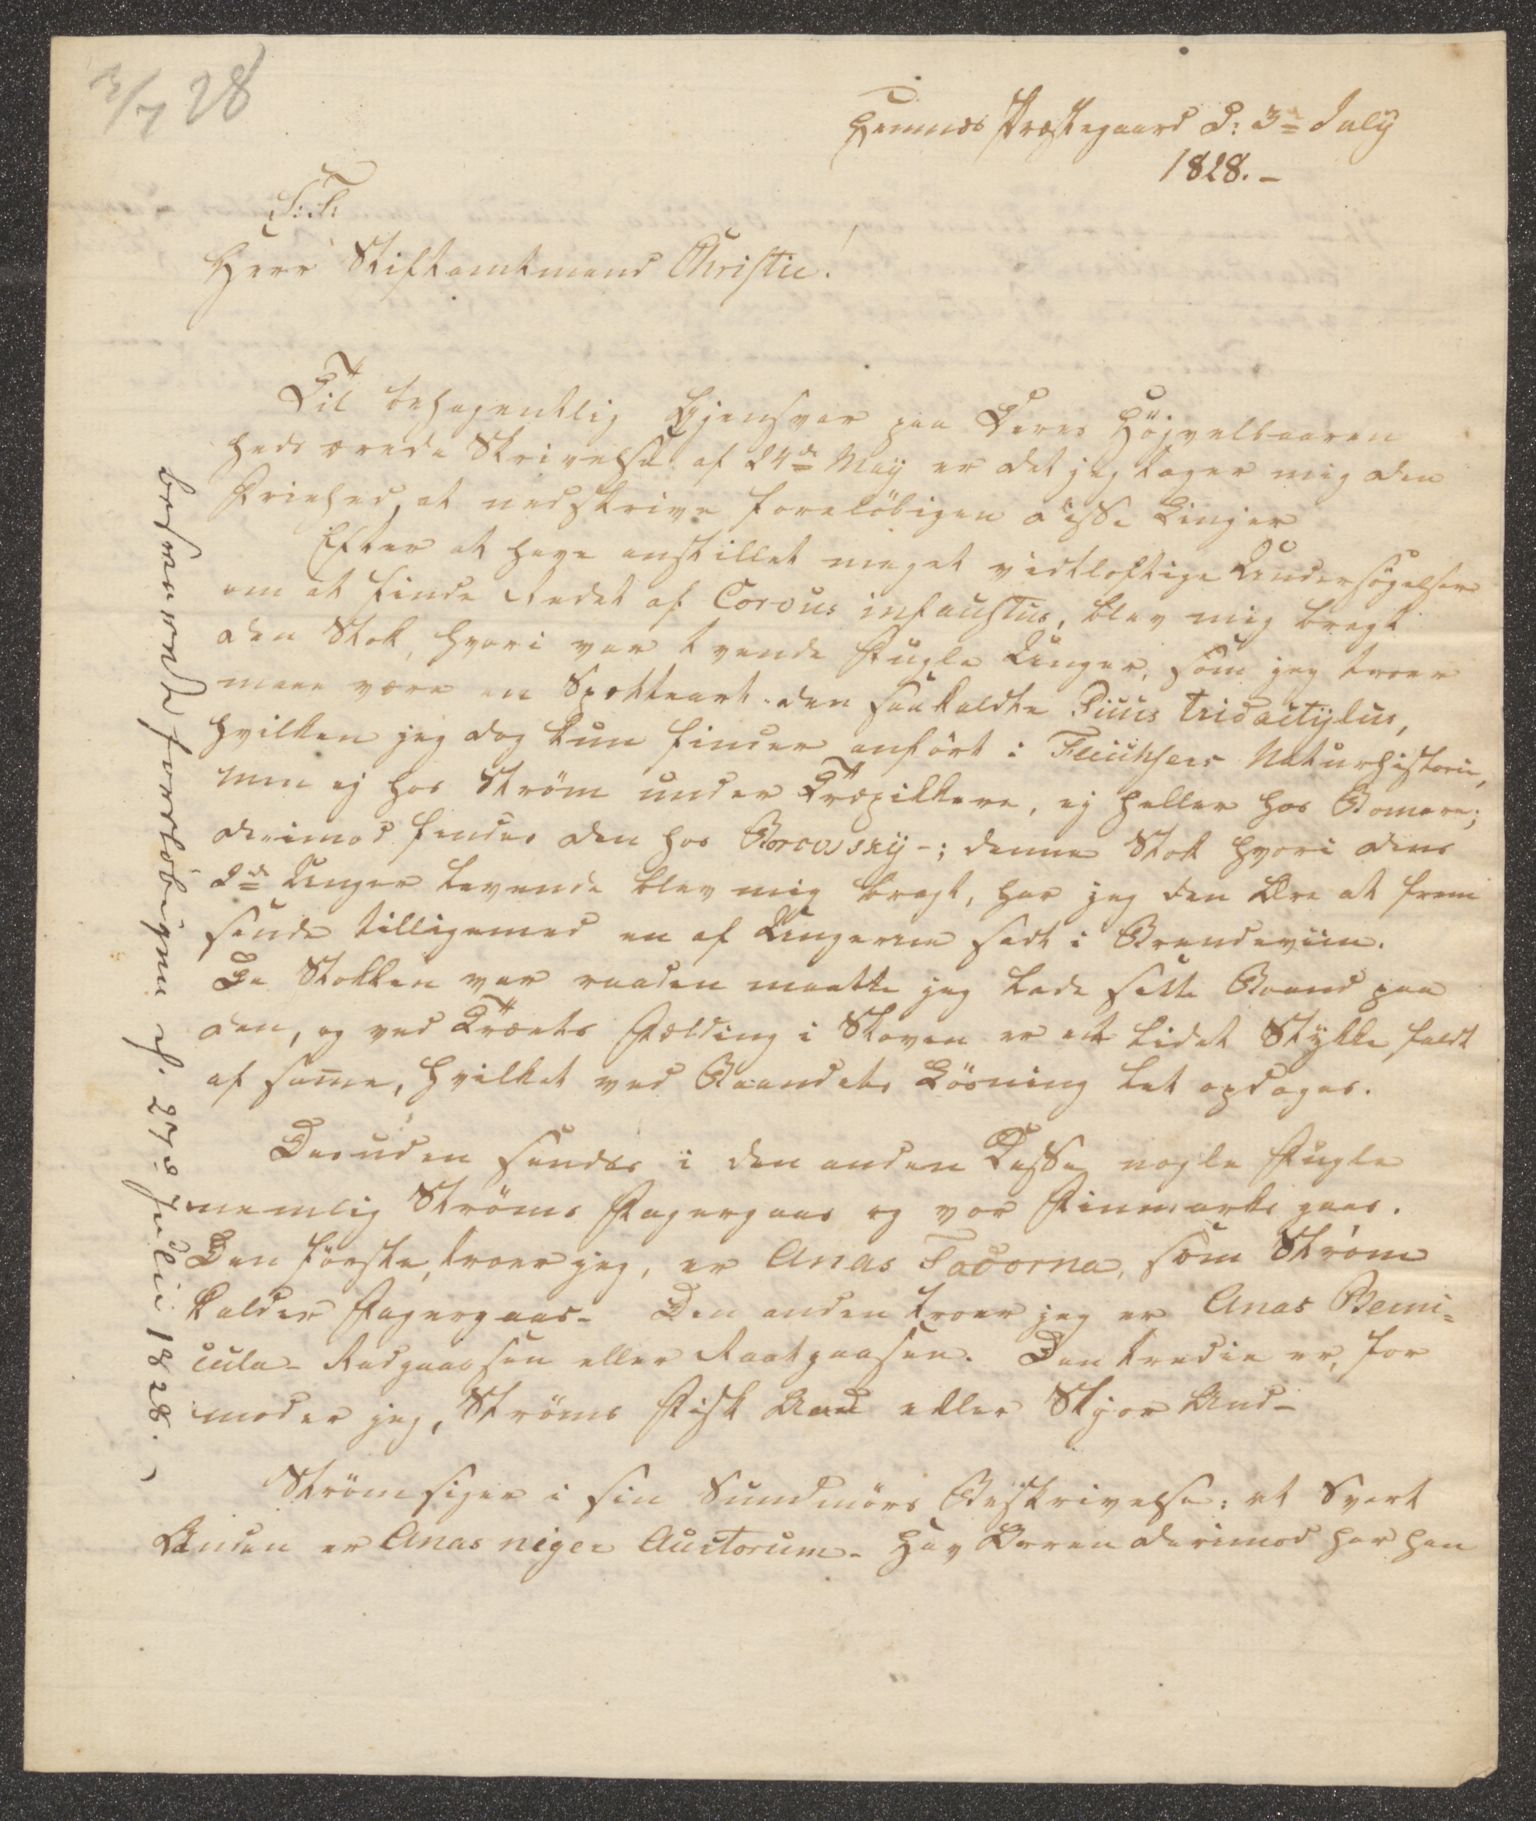 3/7 28
Hemnæs Præstegaard d: 3de July
1828. –
S: T:
Herr Stiftamtmand Christie!
Til behagentlig Gjensvar paa Deres Højvelbaaren
heds ærede Skrivelse af 24de May er det jeg tager mig den
Friehed, at nedskrive foreløbigen disse Linjer
Efter at have anstillet meget vidtløftige Undersøgelser
om at finde Redet af Corvus infaustus, blev mig bragt
den Stok, hvori var tvende Fugle Unger, som jeg troer
maae være en Spætteart den saakaldte Picus tridactÿlus,
hvilken jeg dog kun finder anført i Naturhistorie,
men ej hos Strøm under Træpikkere, ej heller hos Bomare;
derimod findes den hos Borowsky –; denne Stok hvori dens
2de Unger levende blev mig bragt, har jeg den Ære at frem
sende tilligemed en af Ungerne sadt i Brendeviin.
Da Stokken var raaden maatte jeg lade sette Baand paa
den, og ved Træets Fælding i Skoven er ett lidet Stykke faldt
af same, hvilket ved Baandets Løsning let opdages.
Desuden sendes i den anden Kasse nogle Fugle
nemlig Strøms Fagergaas og vor Finmarks gaas.
Den første, troer jeg, er Anas Tadorna, som Strøm
kalder Fagergaas – Den anden troer jeg er Anas Berni=
cula – Radgaasen eller Raatgaasen. Den tredie er, for
moder jeg, Strøms Fisk And eller Skjor And –
Strøm siger i sin Sundmørs Beskrivelse: at Svart
Anden er Anas niger Auctorum – Hav Orren derimod har han
besvaret foreløbigen d. 27de Julii 1828.